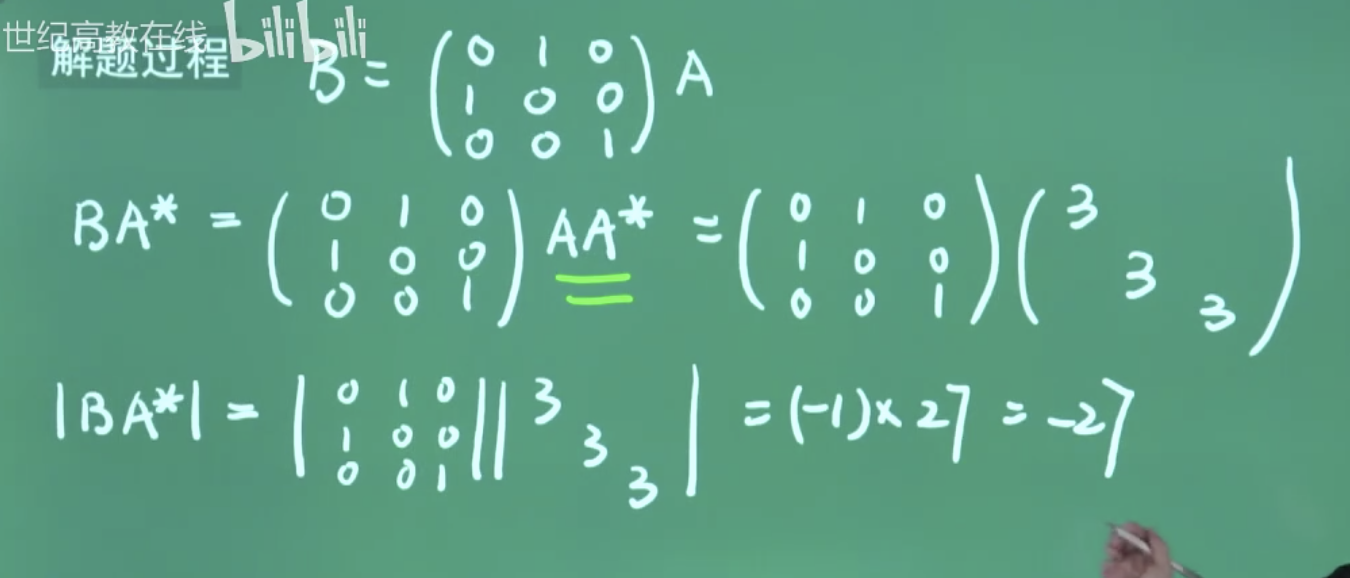 世纪高教在线 bilibili
解题过程 B = ( 0 1 0
1 0 0
0 0 1 ) A
BA* = ( 0 1 0
1 0 0
0 0 1 ) AA* = ( 0 1 0
1 0 0
0 0 1 ) ( 3
3
3 )
|BA*| = | 0 1 0
1 0 0
0 0 1 | | 3
3
3 | = (-1)× 27 = -27